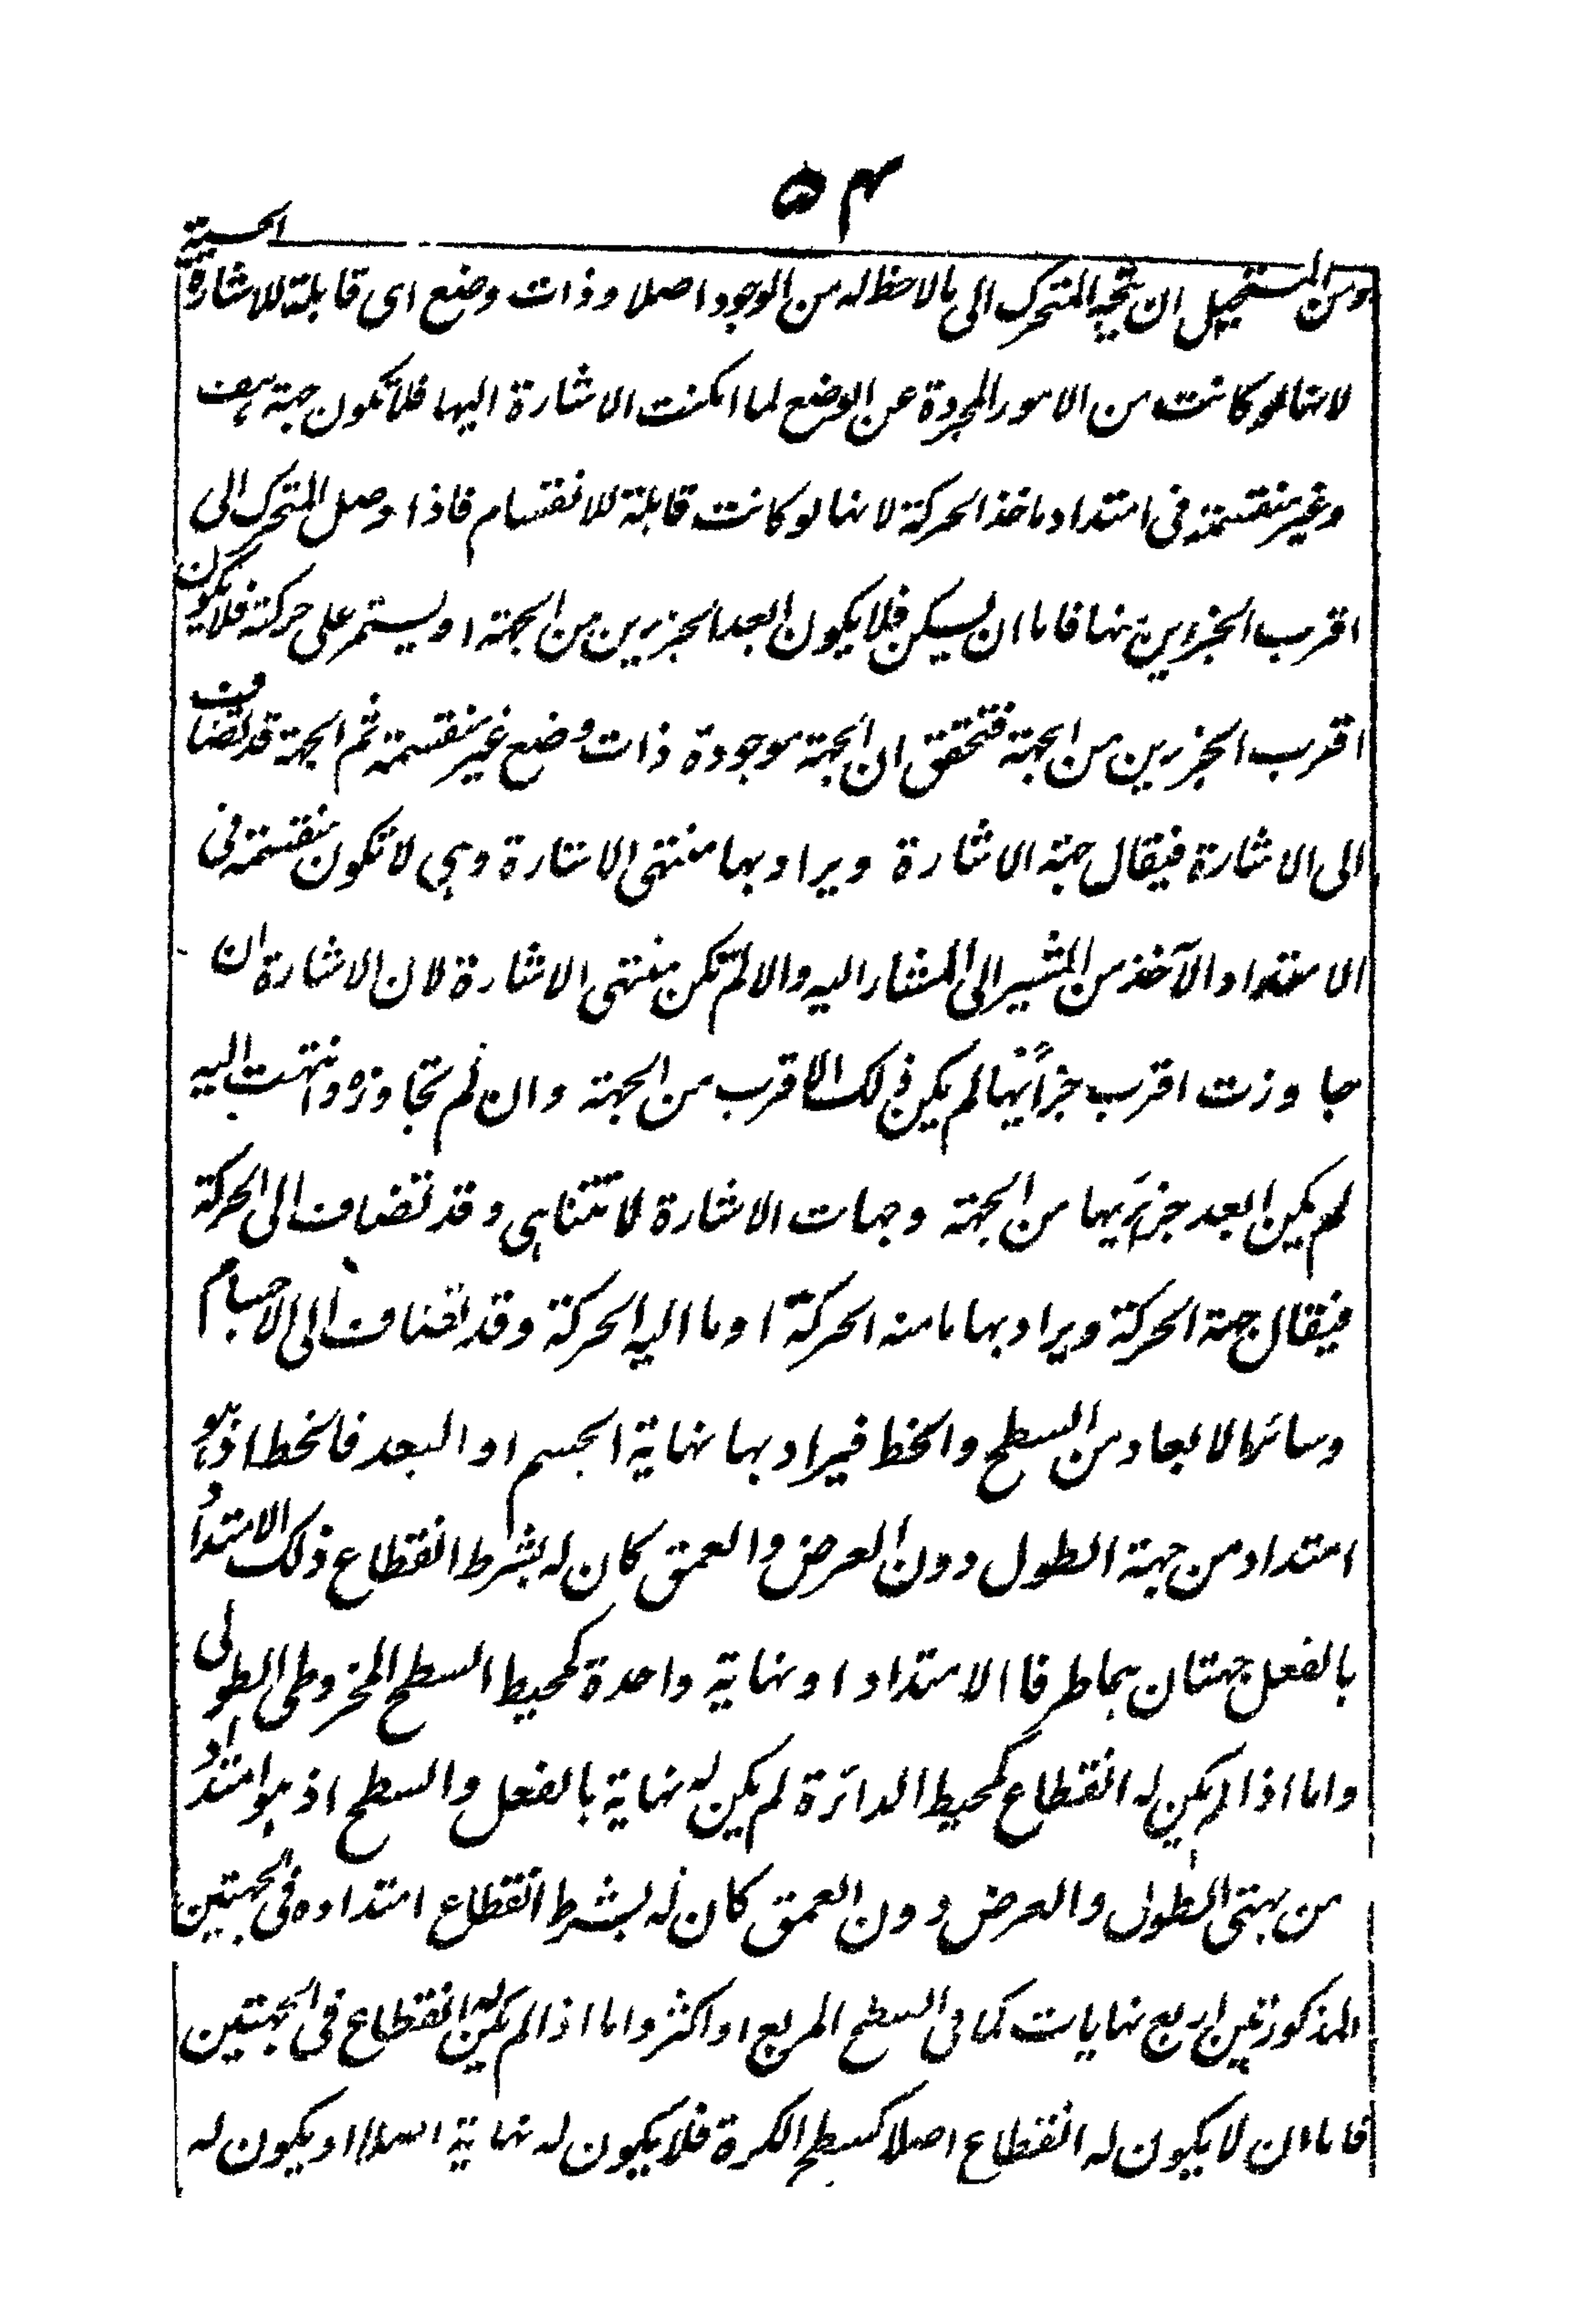 ۵۴
ومن المستحيل ان يتجه المتحرك الى ما لاحظ له من الوجود اصلا وذات وضع اى قابلة للاشارة الحسية
لانها لو كانت من الامور المجردة عن الوضع لما امكنت الاشارة اليها فلا تكون جهة هف
وغير منقسمة فى امتداد ماخذ الحركة لانها لو كانت قابلة للانقسام فاذا وصل المتحرك الى
اقرب الجزئين منها فاما ان يسكن فلا يكون ابعد الجزئين من الجهة او يستمر على حركته فلا يكون
اقرب الجزئين من الجهة فتحقق ان الجهة موجودة ذات وضع غير منقسمة ثم الجهة قد تضاف
الى الاشارة فيقال جهة الاشارة ويراد بها منتهى الاشارة وهى لا تكون منقسمة فى
الامتداد الآخذ من المشير الى المشار اليه والا لم تكن منتهى الاشارة لان الاشارة ان
جاوزت اقرب جزأيها لم يكن ذلك الاقرب من الجهة وان لم تجاوزه وانتهت اليه
لم يكن ابعد جزئيها من الجهة وجهات الاشارة لا تتناهى وقد تضاف الى الحركة
فيقال جهة الحركة ويراد بها ما منه الحركة او ما اليه الحركة وقد تضاف الى الاجسام
وسائر الابعاد من السطح والخط فيراد بها نهاية الجسم او البعد فالخط اذ هو
امتداد من جهة الطول دون العرض والعمق كان له بشرط انقطاع ذلك الامتداد
بالفعل جهتان هما طرفا الامتداد او نهاية واحدة كمحيط السطح المخروطى الطولى
واما اذا لم يكن له انقطاع كمحيط الدائرة لم يكن له نهاية بالفعل والسطح اذ هو امتداد
من جهتى الطول والعرض دون العمق كان له بشرط انقطاع امتداده فى الجهتين
المذكورتين اربع نهايات كما فى السطح المربع او اكثر واما اذا لم يكن له انقطاع فى الجهتين
فاما ان لا يكون له انقطاع اصلا كسطح الكرة فلا يكون له نهاية اصلا او يكون له